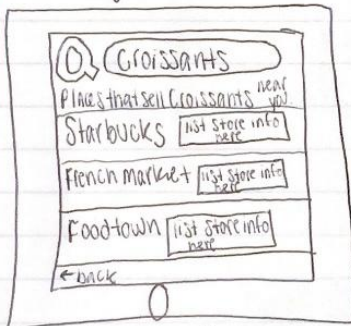 Croissants
Places that sell Croissants near you.
Starbucks list store info here
French market list store info here
Foodtown list store info here
←back